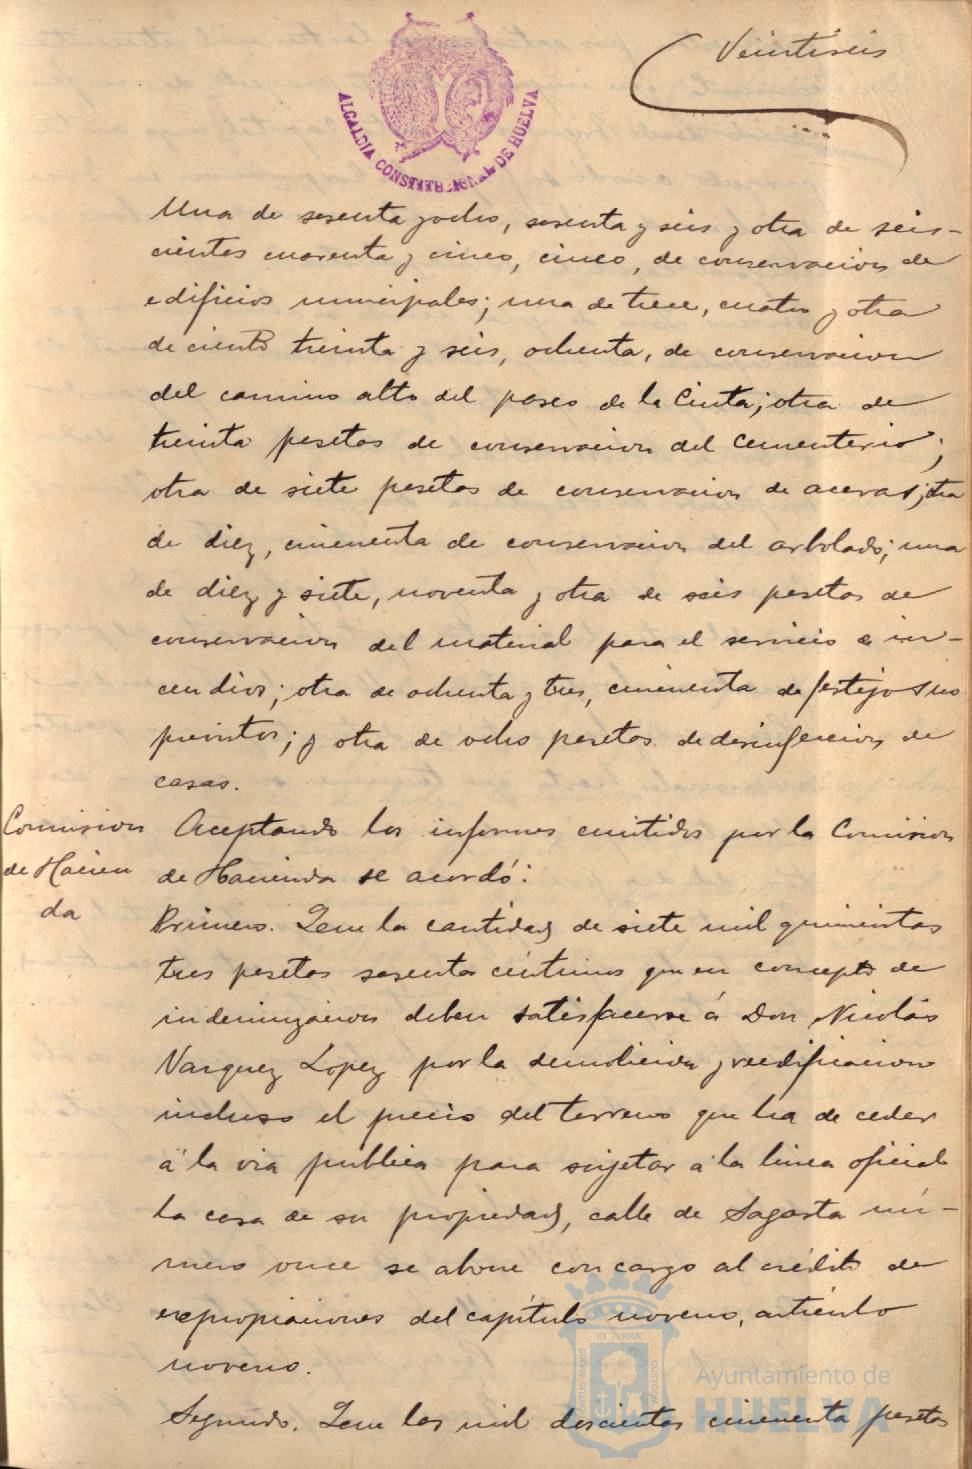 Veintiseis
ALCALDIA CONSTITUCIONAL DE HUELVA
Una de sesenta y ocho, sesenta y seis y otra de seis-
cientos cuarenta y cinco, cinco, de conservacion de
edificios municipales; una de trece, cuatro y otra
de ciento treinta y seis, ochenta, de conservacion
del camino alto del paseo de la Cinta; otra de
treinta pesetas de conservacion del Cementerio;
otra de siete pesetas de conservacion de aceras; otra
de diez, cincuenta de conservacion del arbolado; una
de diez y siete, noventa y otra de seis pesetas de
conservacion del material para el servicio de in-
cendios; otra de ochenta y tres, cincuenta de festejos no
previstos; y otra de ocho pesetas de desinfeccion de
casas.
Comision
de Hacien
da
Aceptando los informes emitidos por la Comision
de Hacienda se acordó:
Primero. Que la cantidad de siete mil quinientas
tres pesetas sesenta céntimos que en concepto de
indemnizacion deben satisfacerse á Don Nicolás
Vazquez Lopez por la demolicion y reedificacion
incluso el precio del terreno que ha de ceder
á la via publica para sujetar á la linea oficial
la casa de su propiedad, calle de Sagasta nú-
mero once se abone con cargo al crédito de
expropiaciones del capítulo noveno, artículo
noveno.
Segundo. Que las mil doscientas cincuenta pesetas
Ayuntamiento de
HUELVA